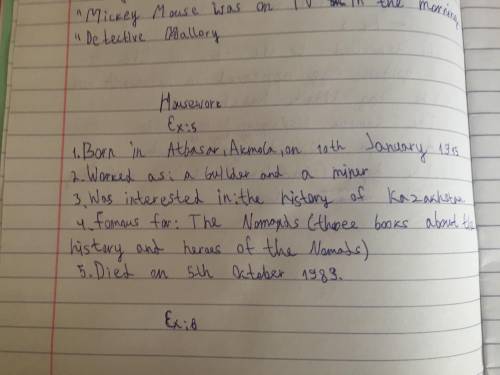 "Mickey Mouse was on TV in the morning
"Detective Mallory
Housework
Ex:5
1.Born in Atbasar, Akmola, on 10th January 1915
2.Worked as: a builder and a miner
3.Was interested in: the history of Kazakhstan
4.Famous for: The Nomads (three books about the
history and heroes of the Nomads)
5.Died on 5th October 1983.
Ex:8